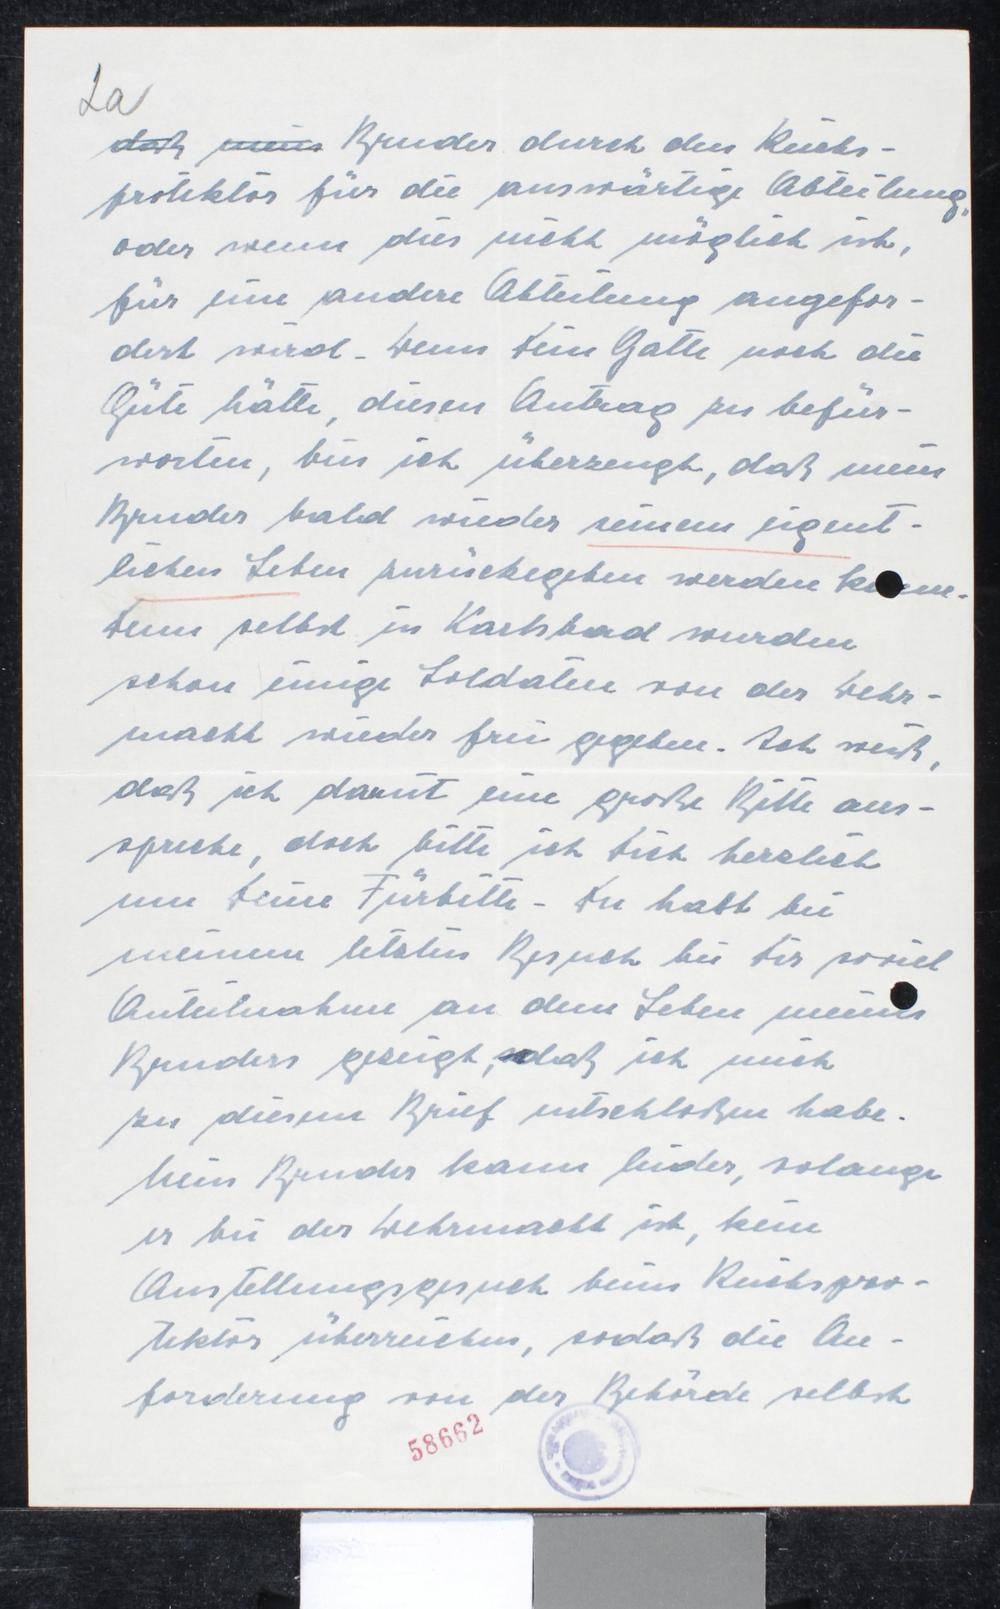 2a
daß mein Bruder durch den Reichs-
protektor für die auswärtige Abteilung,
oder wenn dies nicht möglich ist,
für eine andere Abteilung angefor-
dert wird. Wenn Dein Gatte noch die
Güte hätte, diesen Antrag zu befür-
worten, bin ich überzeugt, daß mein
Bruder bald wieder seinem eigent-
lichen Leben zurückgegeben werden kann.
Denn selbst in Karlsbad wurden
schon einige Soldaten von der Wehr-
macht wieder frei gegeben. Ich weiß,
daß ich damit eine große Bitte aus-
spreche, doch bitte ich Dich herzlich
um Deine Fürbitte. Du hast bei
meinem letzten Besuch bei Dir soviel
Anteilnahme an dem Leben meines
Bruders gezeigt, daß ich mich
zu diesem Brief entschloßen habe.
Mein Bruder kann leider, solange
er bei der Wehrmacht ist, kein
Anstellungsgesuch beim Reichspro-
tektor überreichen, sodaß die An-
forderung von der Behörde selbst
58662